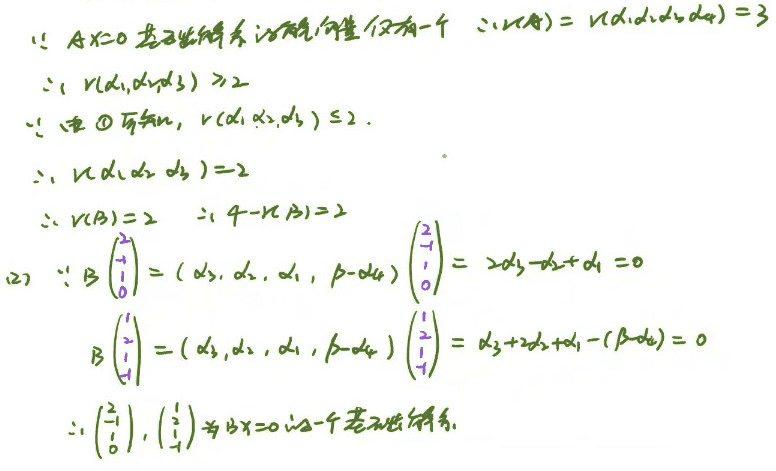 ∵ AX=0 基础解系的解向量仅有一个 ∴ r(A) = r(α₁α₂α₃α₄) = 3
∴ r(α₁,α₂,α₃) ≥ 2
∵ 由 ① 可知, r(α₁ α₂,α₃) ≤ 2.
∴ r(α₁ α₂ α₃) = 2
∴ r(B) = 2 ∴ 4 - r(B) = 2
(2) ∵ B (2 -1 1 0) = (α₃, α₂, α₁, β-α₄) (2 -1 1 0) = 2α₃-α₂+α₁ = 0
B (1 2 1 -1) = (α₃, α₂, α₁, β-α₄) (1 2 1 -1) = α₃+2α₂+α₁-(β-α₄) = 0
∴ (2 -1 1 0), (1 2 1 -1) 为 BX=0 的一个基础解系.